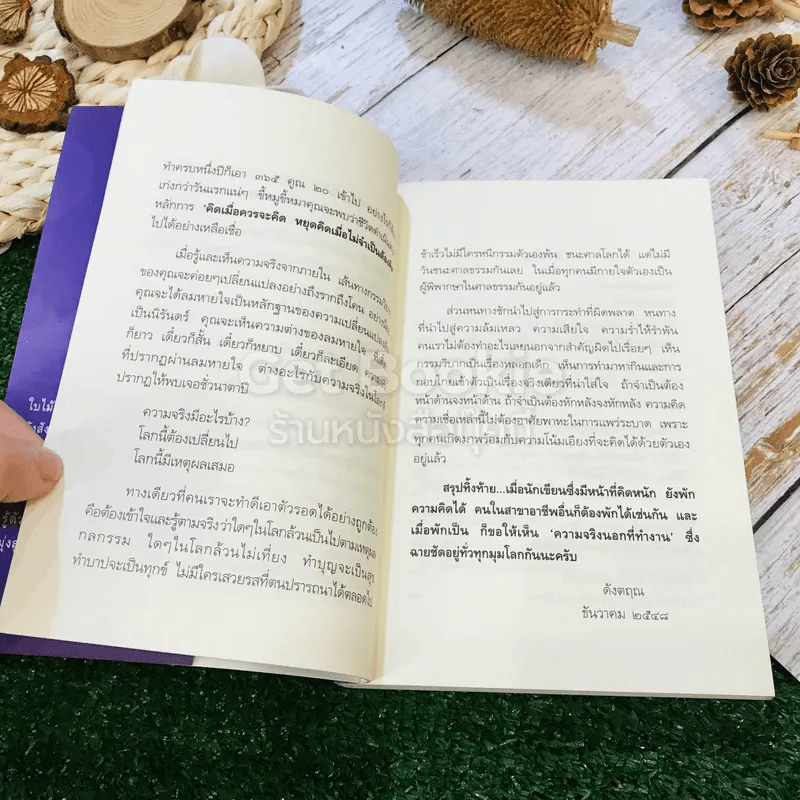 ทำครบหนึ่งปีก็เอา ๓๖๕ คูณ ๒๐ เข้าไป อย่างไรก็
เก่งกว่าวันแรกแน่ๆ ขี้หมูขี้หมาคุณจะพบว่าชีวิตดำเนิน
หลักการ 'คิดเมื่อควรจะคิด หยุดคิดเมื่อไม่จำเป็นต้อง
ไปได้อย่างเหลือเชื่อ
เมื่อรู้และเห็นความจริงจากภายใน เส้นทางกรรมวิบาก
ของคุณจะค่อยๆเปลี่ยนแปลงอย่างถึงรากถึงโคน อย่างน้อย
คุณจะได้ลมหายใจเป็นหลักฐานของความเปลี่ยนแปลง
เป็นนิรันดร์ คุณจะเห็นความต่างของลมหายใจ ที่เดี๋ยว
ก็ยาว เดี๋ยวก็สั้น เดี๋ยวก็หยาบ เดี๋ยวก็ละเอียด ความ
ที่ปรากฏผ่านลมหายใจ ต่างอะไรกับความจริงในโลก
ปรากฏให้พบเจอชั่วนาตาปี
ความจริงมีอะไรบ้าง?
โลกนี้ต้องเปลี่ยนไป
โลกนี้มีเหตุผลเสมอ
ทางเดียวที่คนเราจะทำดีเอาตัวรอดได้อย่างถูกต้อง
คือต้องเข้าใจและรู้ตามจริงว่าใดๆในโลกล้วนเป็นไปตามเหตุผล
กลกรรม ใดๆในโลกล้วนไม่เที่ยง ทำบุญจะเป็นสุข
ทำบาปจะเป็นทุกข์ ไม่มีใครเสวยรสที่ตนปรารถนาได้ตลอดไป
ช้าเร็วไม่มีใครหนีกรรมตัวเองพ้น ชนะศาลโลกได้ แต่ไม่มี
วันชนะศาลธรรมกันเลย ในเมื่อทุกคนมีกายใจตัวเองเป็น
ผู้พิพากษาในศาลธรรมกันอยู่แล้ว
ส่วนหนทางชักนำไปสู่การกระทำที่ผิดพลาด หนทาง
ที่นำไปสู่ความล้มเหลว ความเสียใจ ความร่ำไห้รำพัน
คนเราไม่ต้องทำอะไรเลยนอกจากสำคัญผิดไปเรื่อยๆ เห็น
กรรมวิบากเป็นเรื่องหลอกเด็ก เห็นการทำมาหากินและการ
กอบโกยเข้าตัวเป็นเรื่องจริงเดียวที่น่าใส่ใจ ถ้าจำเป็นต้อง
หน้าด้านจงหน้าด้าน ถ้าจำเป็นต้องหักหลังจงหักหลัง ความคิด
ความเชื่อเหล่านี้ไม่ต้องอาศัยพาหะในการแพร่ระบาด เพราะ
ทุกคนเกิดมาพร้อมกับความโน้มเอียงที่จะคิดได้ด้วยตัวเอง
อยู่แล้ว
สรุปทิ้งท้าย...เมื่อนักเขียนซึ่งมีหน้าที่คิดหนัก ยังพัก
ความคิดได้ คนในสาขาอาชีพอื่นก็ต้องพักได้เช่นกัน และ
เมื่อพักเป็น ก็ขอให้เห็น 'ความจริงนอกที่ทำงาน' ซึ่ง
ฉายชัดอยู่ทั่วทุกมุมโลกกันนะครับ
ดังตฤณ
ธันวาคม ๒๕๔๘
Get Bookie
ร้านหนังสือกู๊ดดี้
ใบไม้